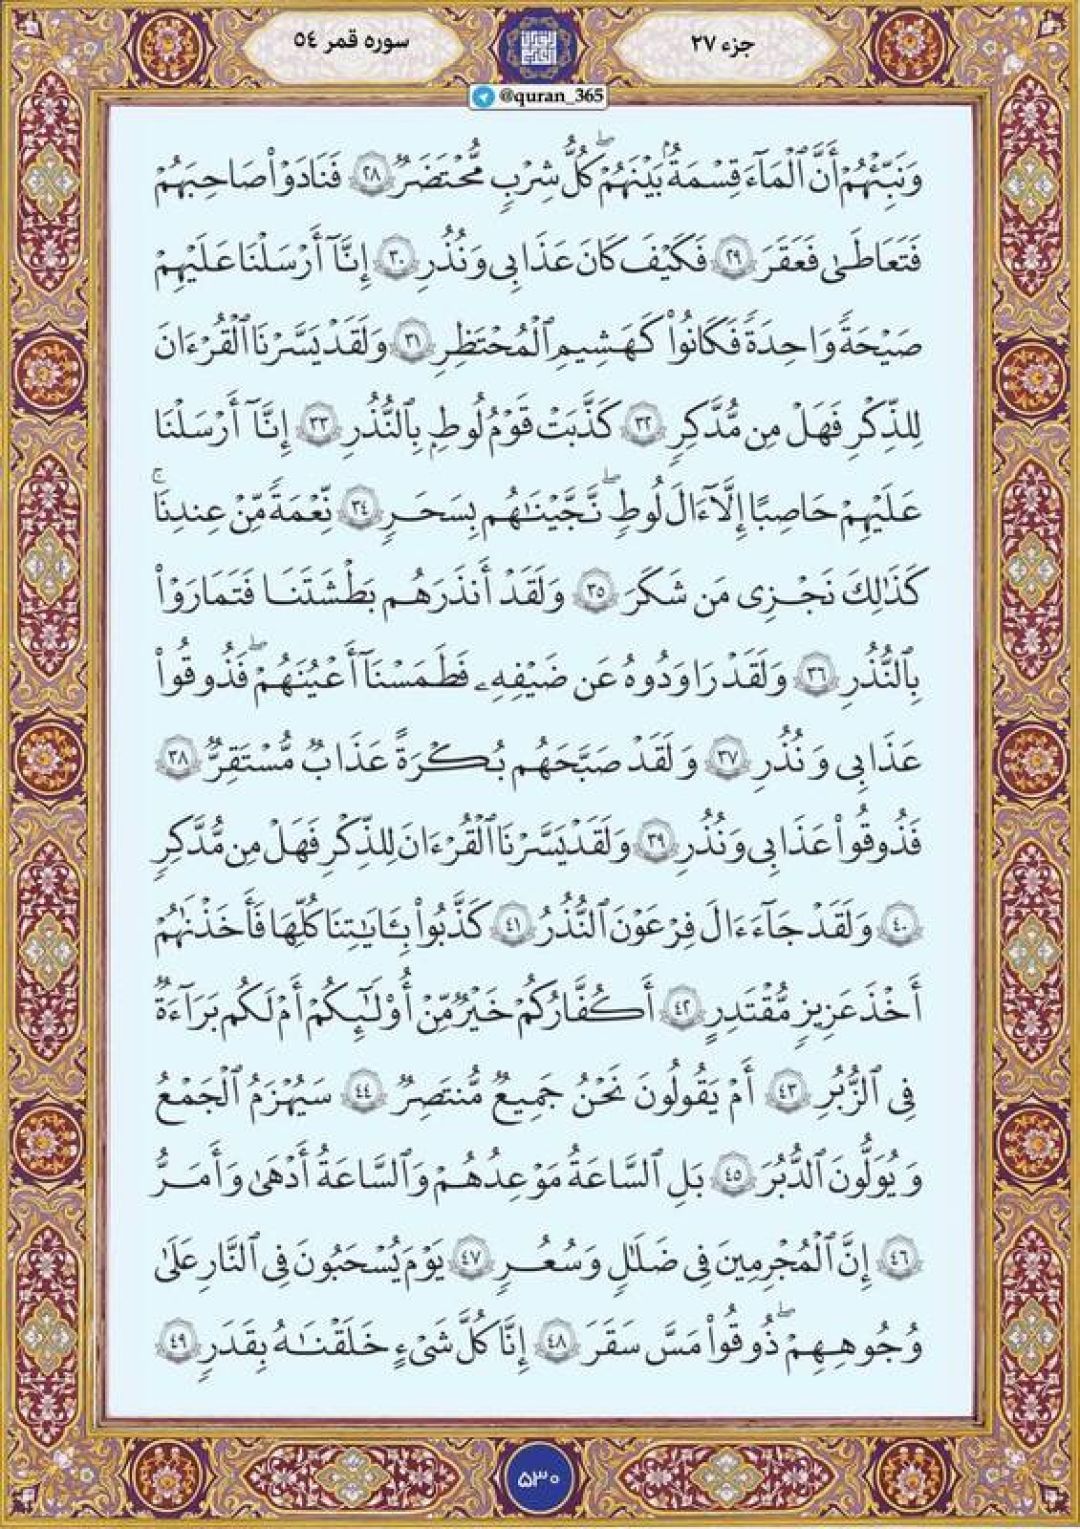 جزء ۲۷
سوره قمر ٥٤
@quran_365
وَنَبِّئْهُمْ أَنَّ ٱلْمَآءَ قِسْمَةٌۢ بَيْنَهُمْ ۖ كُلُّ شِرْبٍ مُّحْتَضَرٌ ٢٨ فَنَادَوْا۟ صَاحِبَهُمْ
فَتَعَاطَىٰ فَعَقَرَ ٢٩ فَكَيْفَ كَانَ عَذَابِى وَنُذُرِ ٣٠ إِنَّآ أَرْسَلْنَا عَلَيْهِمْ
صَيْحَةً وَاحِدَةً فَكَانُوا۟ كَهَشِيمِ ٱلْمُحْتَظِرِ ٣١ وَلَقَدْ يَسَّرْنَا ٱلْقُرْءَانَ
لِلذِّكْرِ فَهَلْ مِن مُّدَّكِرٍ ٣٢ كَذَّبَتْ قَوْمُ لُوطٍۭ بِٱلنُّذُرِ ٣٣ إِنَّآ أَرْسَلْنَا
عَلَيْهِمْ حَاصِبًا إِلَّآ ءَالَ لُوطٍ ۖ نَّجَّيْنَـٰهُم بِسَحَرٍ ٣٤ نِّعْمَةً مِّنْ عِندِنَا ۚ
كَذَٰلِكَ نَجْزِى مَن شَكَرَ ٣٥ وَلَقَدْ أَنذَرَهُم بَطْشَتَنَا فَتَمَارَوْا۟
بِٱلنُّذُرِ ٣٦ وَلَقَدْ رَاوَدُوهُ عَن ضَيْفِهِۦ فَطَمَسْنَآ أَعْيُنَهُمْ ۖ فَذُوقُوا۟
عَذَابِى وَنُذُرِ ٣٧ وَلَقَدْ صَبَّحَهُم بُكْرَةً عَذَابٌ مُّسْتَقِرٌّ ٣٨
فَذُوقُوا۟ عَذَابِى وَنُذُرِ ٣٩ وَلَقَدْ يَسَّرْنَا ٱلْقُرْءَانَ لِلذِّكْرِ فَهَلْ مِن مُّدَّكِرٍ
٤٠ وَلَقَدْ جَآءَ ءَالَ فِرْعَوْنَ ٱلنُّذُرُ ٤١ كَذَّبُوا۟ بِـَٔايَـٰتِنَا كُلِّهَا فَأَخَذْنَـٰهُمْ
أَخْذَ عَزِيزٍ مُّقْتَدِرٍ ٤٢ أَكُفَّارُكُمْ خَيْرٌ مِّنْ أُو۟لَـٰٓئِكُمْ أَمْ لَكُم بَرَآءَةٌ
فِى ٱلزُّبُرِ ٤٣ أَمْ يَقُولُونَ نَحْنُ جَمِيعٌ مُّنتَصِرٌ ٤٤ سَيُهْزَمُ ٱلْجَمْعُ
وَيُوَلُّونَ ٱلدُّبُرَ ٤٥ بَلِ ٱلسَّاعَةُ مَوْعِدُهُمْ وَٱلسَّاعَةُ أَدْهَىٰ وَأَمَرُّ
٤٦ إِنَّ ٱلْمُجْرِمِينَ فِى ضَلَـٰلٍ وَسُعُرٍ ٤٧ يَوْمَ يُسْحَبُونَ فِى ٱلنَّارِ عَلَىٰ
وُجُوهِهِمْ ۖ ذُوقُوا۟ مَسَّ سَقَرَ ٤٨ إِنَّا كُلَّ شَىْءٍ خَلَقْنَـٰهُ بِقَدَرٍ ٤٩
۵۳۰